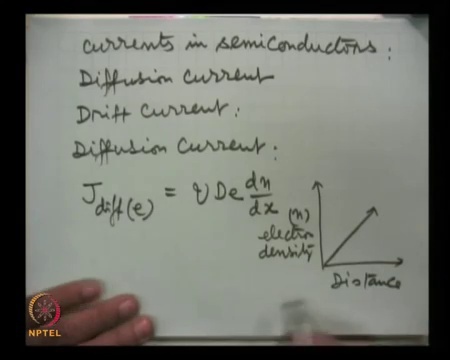 currents in semiconductors:
Diffusion Current
Drift Current:
Diffusion Current:
J diff(e) = q De dn/dx
(n)
electron
density
Distance
NPTEL